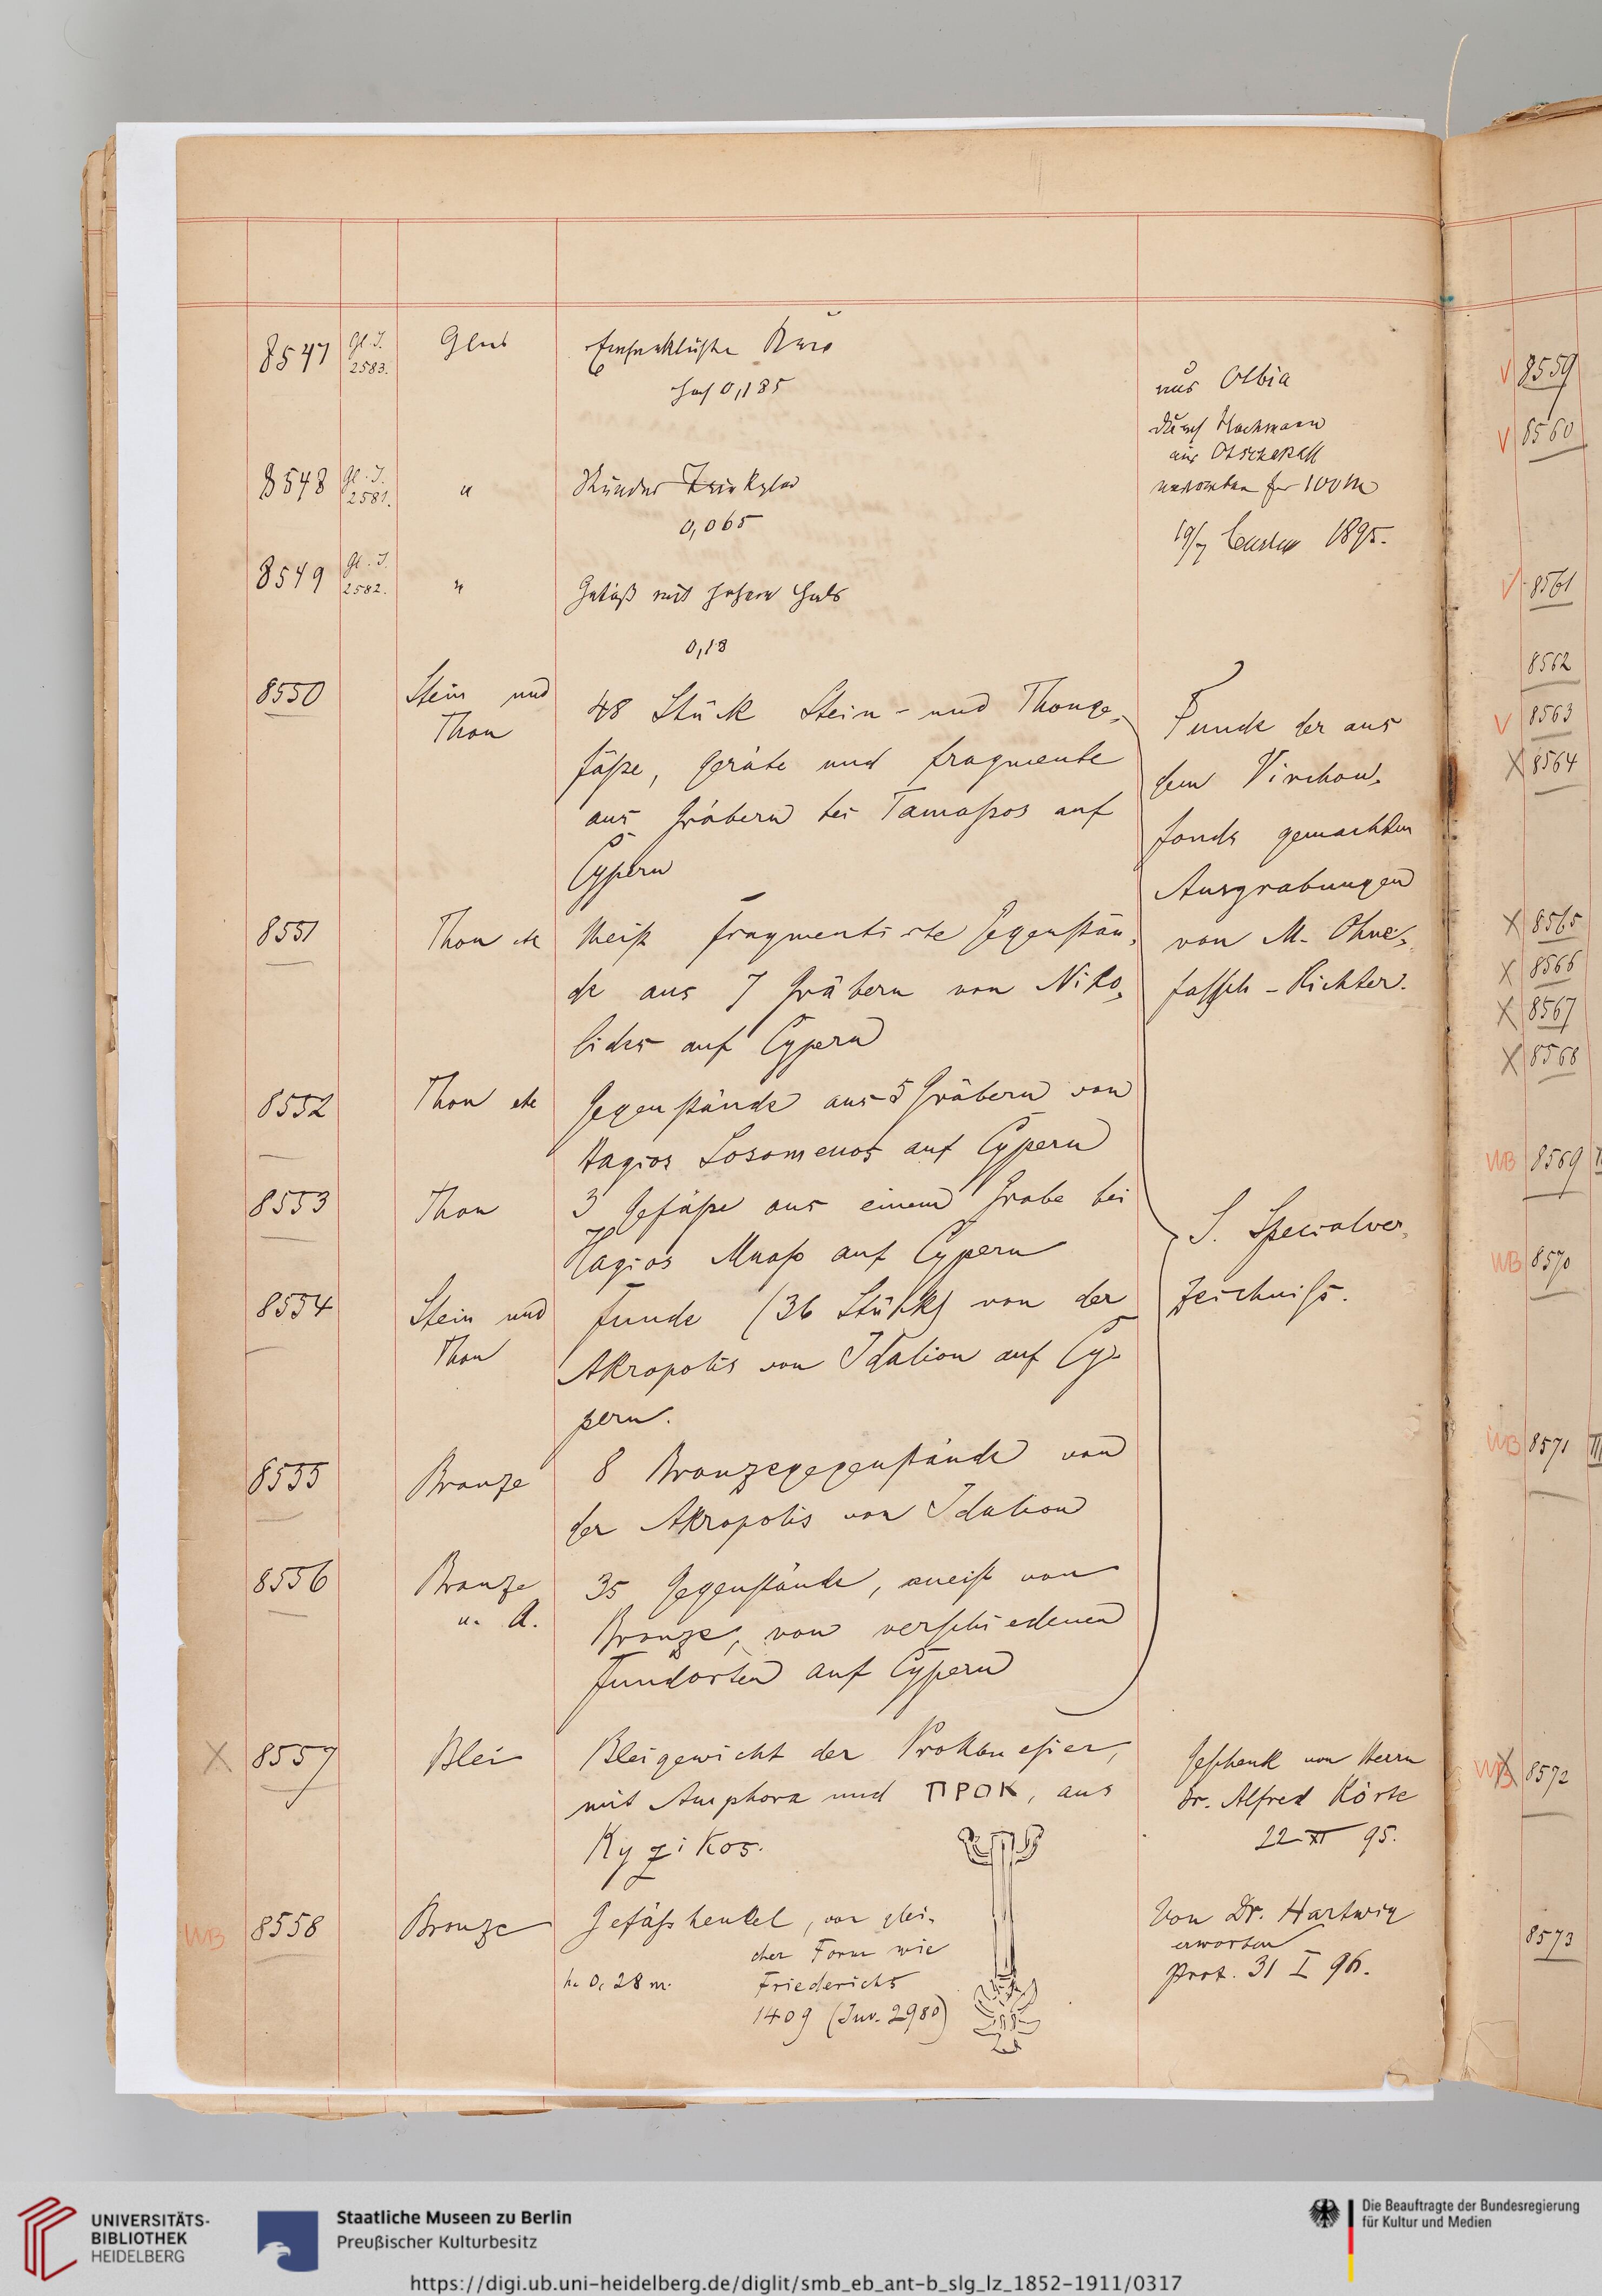 8547
Gl. I.
2583.
Glas
hoch 0,185
aus Olbia
durch
aus Otschakoff
erworben für 100 M
19/7 1895.
8548
Gl. I.
2581.
"
Rundes Trinkglas
0,065
8549
Gl. I.
2582.
"
Gefäß mit hohem Hals
0,18
8550
Stein und
Thon
48 Stück Stein- und Thonge-
fäße, Geräte und Fragmente
aus Gräbern bei Tamassos auf
Cypern
Funde der aus
dem Virchow-
fonds gemachten
Ausgrabungen
von M. Ohne-
falsch-Richter.
8551
Thon etc
Meist fragmentirte Gegenstän-
de aus 7 Gräbern von Niko-
lides auf Cypern
8552
Thon etc
Gegenstände aus 5 Gräbern von
Hagios Sosomenos auf Cypern
8553
Thon
3 Gefäße aus einem Grabe bei
Hagios Mnaso auf Cypern
S. Specialver-
zeichniß.
8554
Stein und
Thon
Funde (36 Stück) von der
Akropolis von Idalion auf Cy-
pern.
8555
Bronze
8 Bronzegegenstände von
der Akropolis von Idalion
8556
Bronze
u. A.
35 Gegenstände, meist von
Bronze, von verschiedenen
Fundorten auf Cypern
X 8557
Blei
Bleigewicht der Prokonnesier,
mit Amphora und ΠΡΟΚ, aus
Kyzikos.
Geschenk von Herrn
Dr. Alfred Körte
22 XI 95.
WB 8558
Bronze
Gefäßhenkel, von glei-
cher Form wie
h. 0,28 m. Friederichs
1409 (Inv. 2980)
Von Dr. Hartwig
erworben
Prot. 31 I 96.
V 8559
V 8560
V 8561
8562
V 8563
X 8564
X 8565
X 8566
X 8567
X 8568
WB 8569
WB 8570
WB 8571
WB X 8572
8573
UNIVERSITÄTS-
BIBLIOTHEK
HEIDELBERG
Staatliche Museen zu Berlin
Preußischer Kulturbesitz
Die Beauftragte der Bundesregierung
für Kultur und Medien
https://digi.ub.uni-heidelberg.de/diglit/smb_eb_ant-b_slg_lz_1852-1911/0317